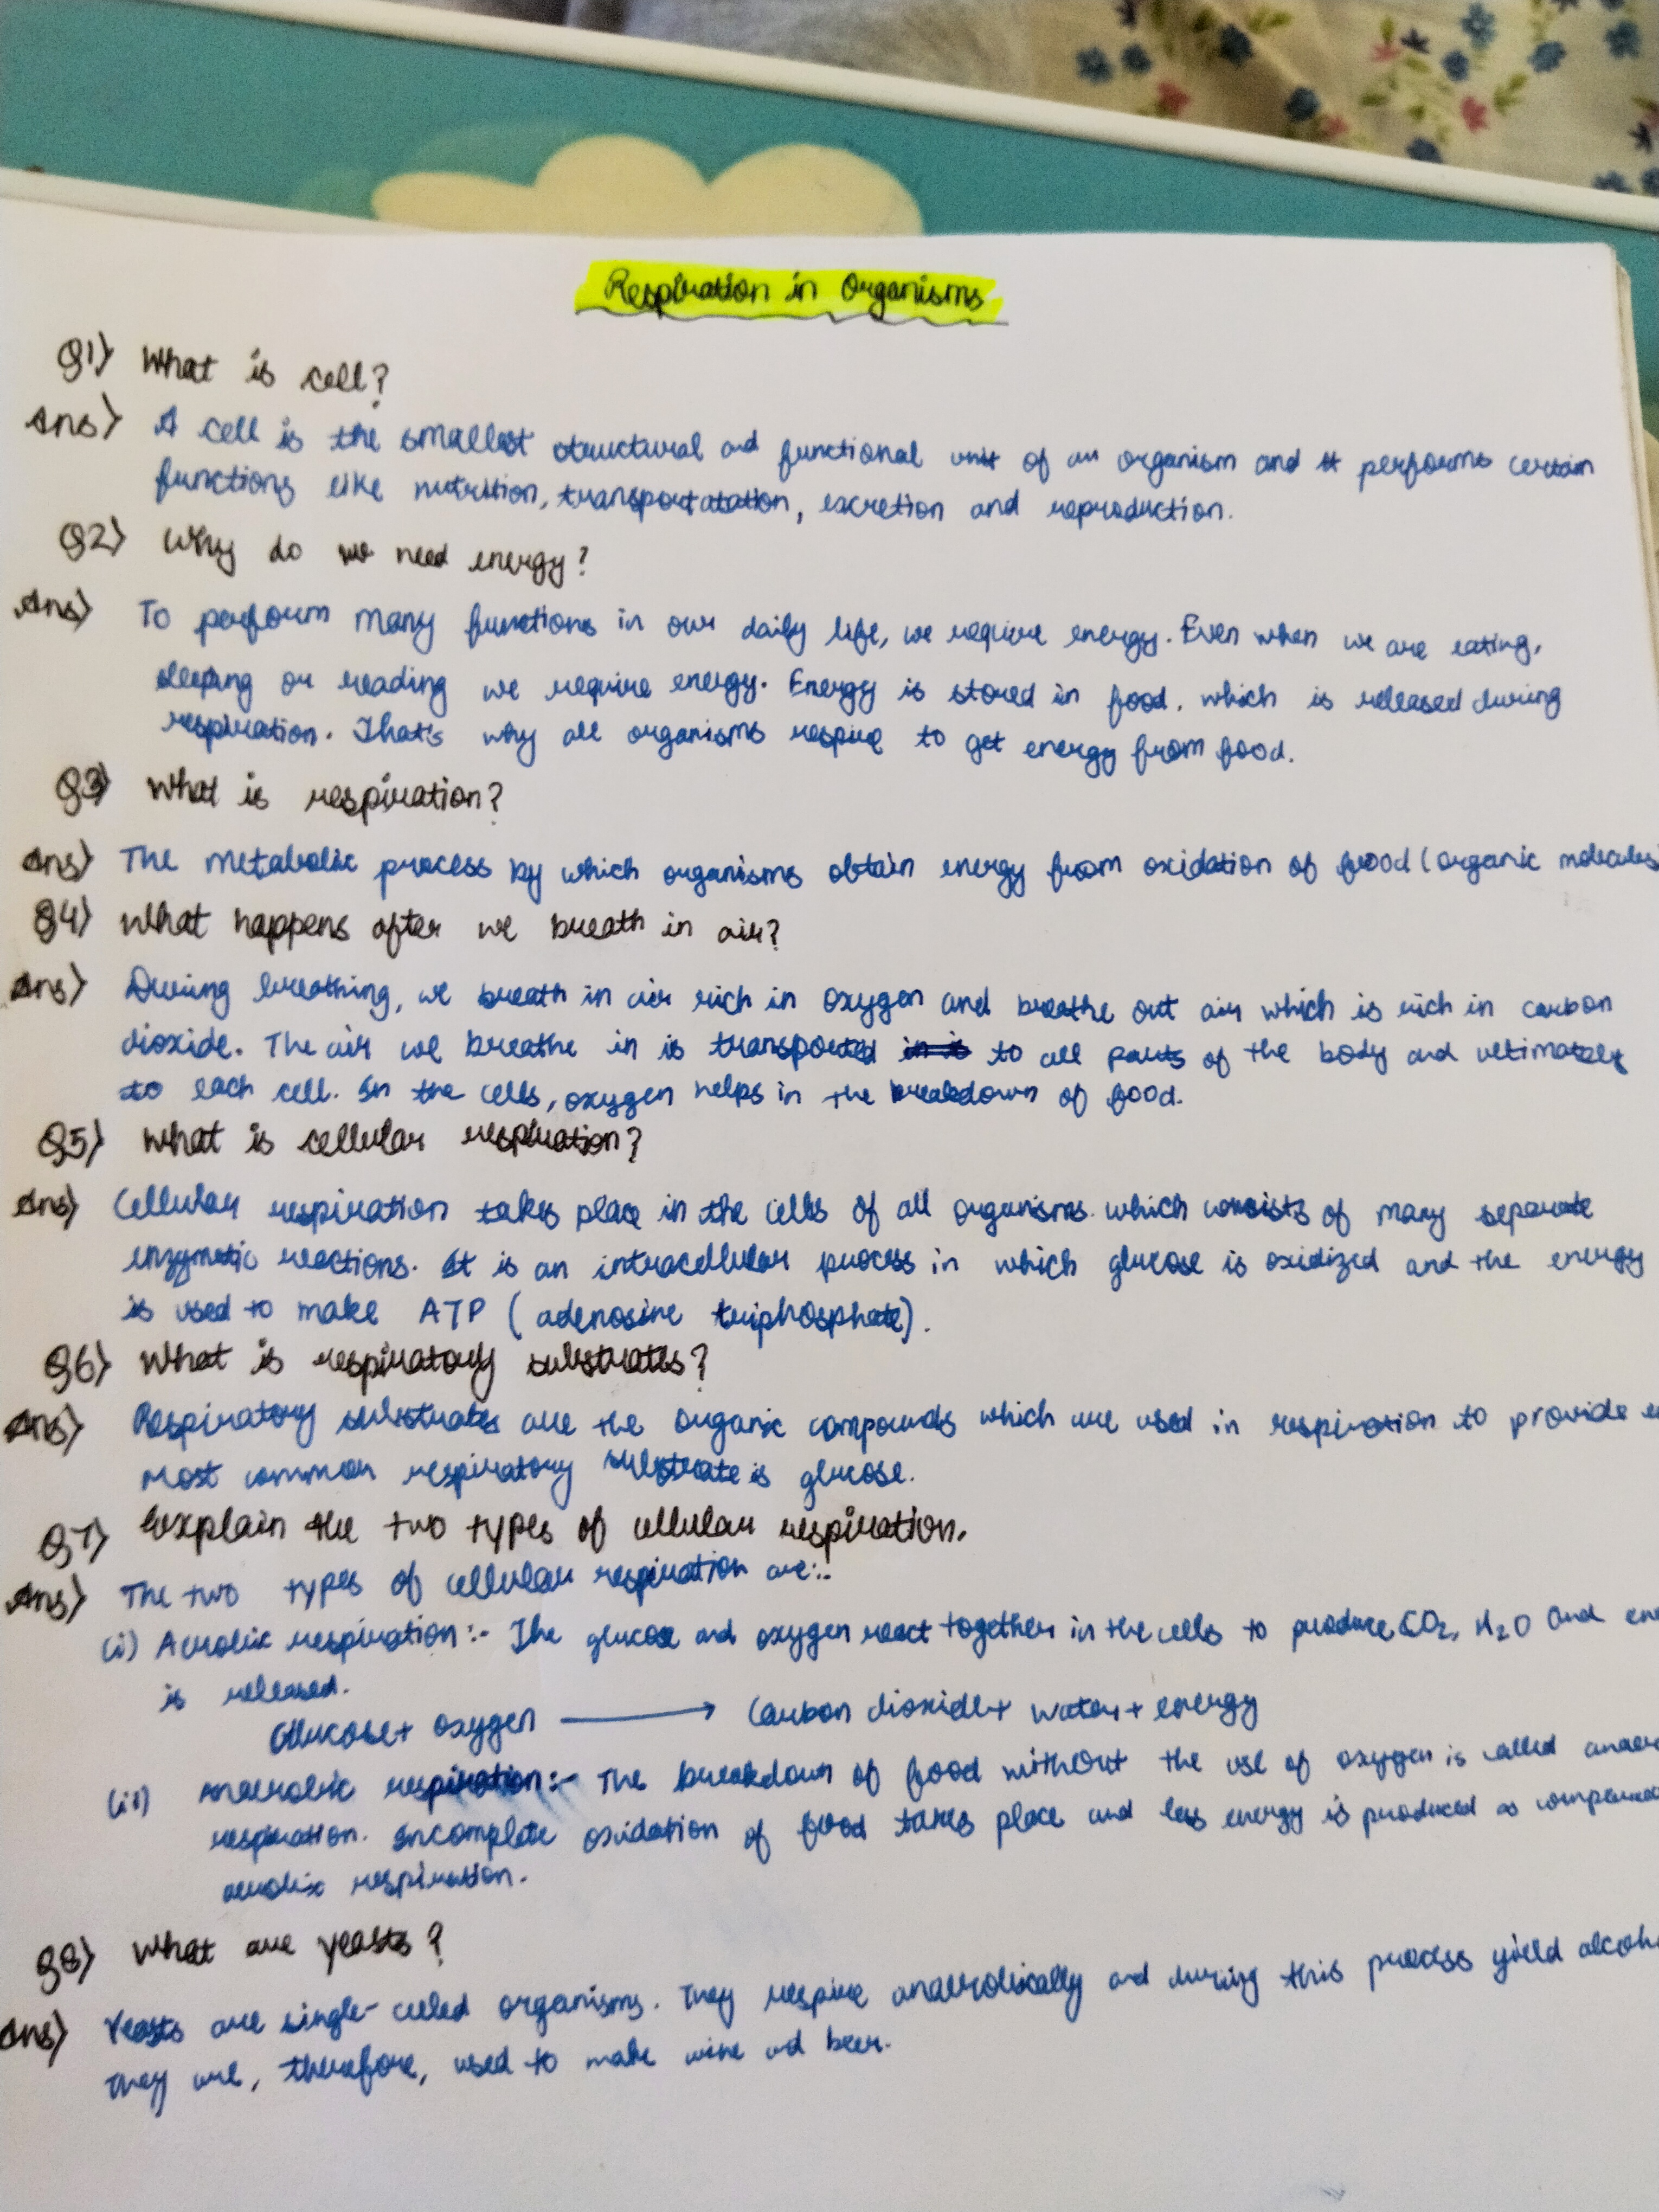 Respiration in Organisms
Q1) What is cell?
Ans) A cell is the smallest structural and functional unit of an organism and it performs certain
functions like nutrition, transportatation, excretion and reproduction.
Q2) Why do we need energy?
Ans) To perform many functions in our daily life, we require energy. Even when we are eating,
sleeping or reading we require energy. Energy is stored in food, which is released during
respiration. That's why all organisms respire to get energy from food.
Q3) What is respiration?
Ans) The metabolic process by which organisms obtain energy from oxidation of food (organic molecules)
Q4) What happens after we breath in air?
Ans) During breathing, we breath in air rich in oxygen and breathe out air which is rich in carbon
dioxide. The air we breathe in is transported to all parts of the body and ultimately
to each cell. In the cells, oxygen helps in the breakdown of food.
Q5) What is cellular respiration?
Ans) Cellular respiration takes place in the cells of all organisms which consists of many separate
enzymatic reactions. It is an intracellular process in which glucose is oxidized and the energy
is used to make ATP (adenosine triphosphate).
Q6) What is respiratory substrates?
Ans) Respiratory substrates are the organic compounds which are used in respiration to provide
Most common respiratory substrate is glucose.
Q7) Explain the two types of cellular respiration.
Ans) The two types of cellular respiration are:-
(i) Aerobic respiration:- The glucose and oxygen react together in the cells to produce CO2, H2O and ene
is released.
Glucose + oxygen ⟶ Carbon dioxide + water + energy
(ii) Anaerobic respiration:- The breakdown of food without the use of oxygen is called anaer
respiration. Incomplete oxidation of food takes place and less energy is produced as compared
aerobic respiration.
Q8) What are yeasts?
Ans) Yeasts are single-celled organisms. They respire anaerobically and during this process yield alcoh
They are, therefore, used to make wine and beer.